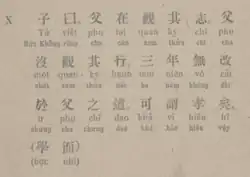 X 子曰。父在觀其志。父
Tử viết phụ tại quan kỳ chí phụ
Đức Khổng rằng cha còn xem thửa chí cha
沒觀其行。三年無改
một quan kỳ hạnh tam niên vô cải
於父之道。可謂孝矣。
ư phụ chi đạo khả vị hiếu hĩ
chưng cha chưng đạo khá bảo hiếu vậy
(學而)
(học nhi)